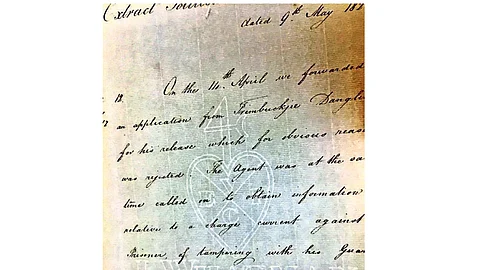 Extract
dated 9th May 18
12. On the 14th April we forwarded
an application from Trimbuckjee Dangle
for his release which for obvious reas
was rejected. The Agent was at the sa
time called on to obtain information
relative to a charge current against
Prisoner of tampering with his Guar